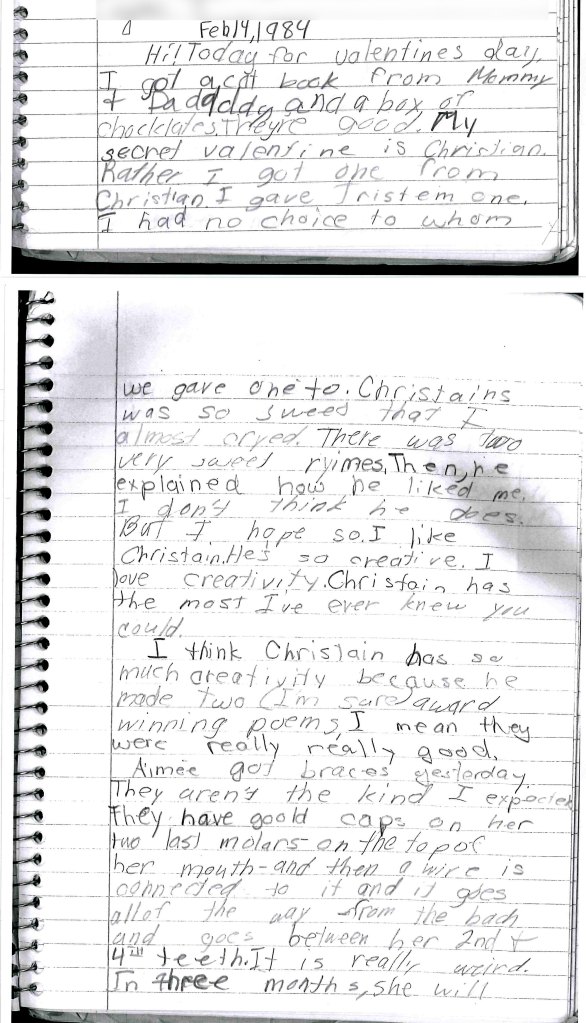 Feb 14, 1984
Hi! Today for valentines day,
I got a book from Mommy
+ Dadddy and a box of
chocklates. They're good. My
secret valentine is Christian.
Rather I got one from
Christian. I gave Tristem one.
I had no choice to whom
we gave one to. Christains
was so sweed that I
almost cryed. There was two
very sweet ryimes. Then, he
explained how he liked me.
I don't think he does.
But I hope so. I like
Christain. He's so creative. I
love creativity. Christain has
the most I've ever knew you
could.
I think Christain has so
much creativity because he
made two (I'm sure) award
winning poems, I mean they
were really really good.
Aimée got braces yesterday.
They aren't the kind I expected
they have goold caps on her
two last molars-on the top of
her mouth-and then a wire is
conneded to it and it goes
all of the way from the bach
and goes between her 2nd +
4th teeth. It is really weird.
In three months, she will